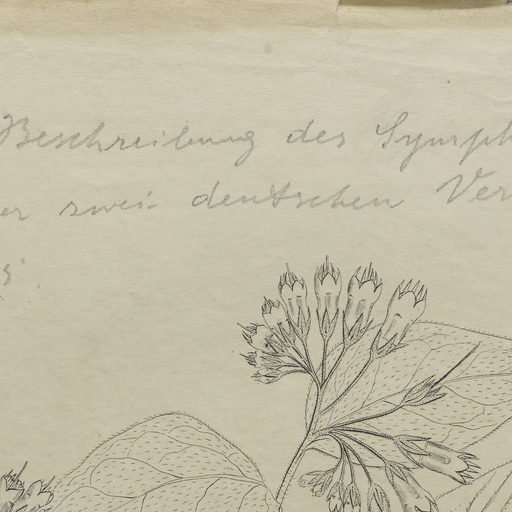 Beschreibung des Symph
er zwei deutschen Ver
s